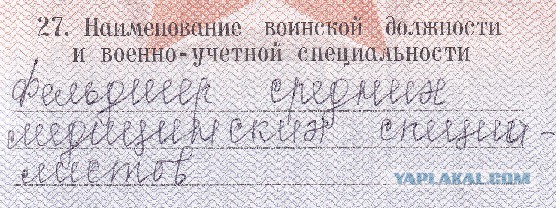 27. Наименование воинской должности
и военно-учетной специальности
Фельдшер средних
медицинских специа-
листов
YAPLAKAL.COM